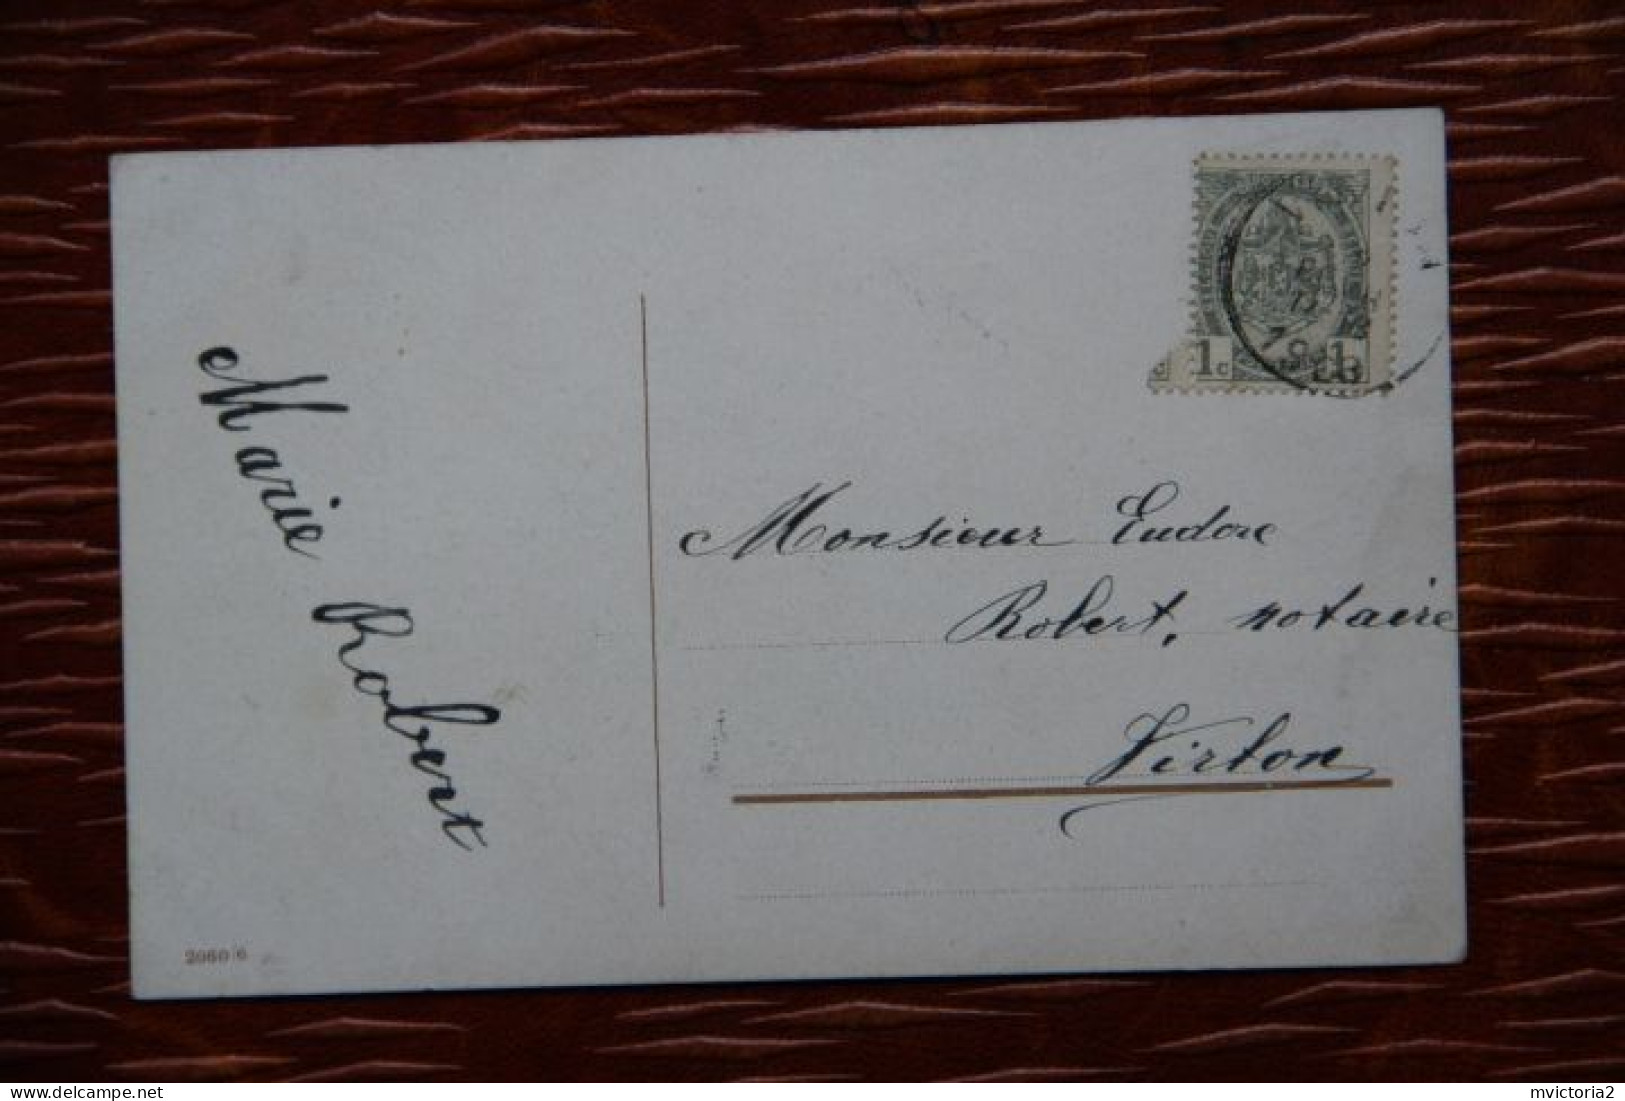 Marie Robert
1c 1c
Monsieur Eudore
Robert, notaire
Virton
2060/6
mvictoria2